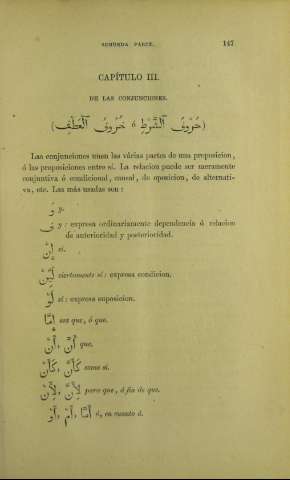 SEGUNDA PARTE. 147
CAPÍTULO III.
DE LAS CONJUNCIONES.
(حُرُوفُ ٱلشَّرْطِ ó حُرُوفُ ٱلْعَطْفِ)
Las conjunciones unen las várias partes de una proposicion,
ó las proposiciones entre sí. La relacion puede ser meramente
conjuntiva ó condicional, causal, de oposicion, de alternati-
va, etc. Las más usadas son:
وَ y.
فَ y: expresa ordinariamente dependencia ó relacion
de anterioridad y posterioridad.
إِنْ si.
لَئِنْ ciertamente si: expresa condicion.
لَوْ si: expresa suposicion.
إِمَّا sea que, ó que.
أَنْ, أَنَّ que.
كَأَنْ, كَأَنَّ como si.
لِأَنْ, لِأَنَّ para que, ó fin de que.
أَوْ, أَمْ, أَمَّا ó, en cuanto á.